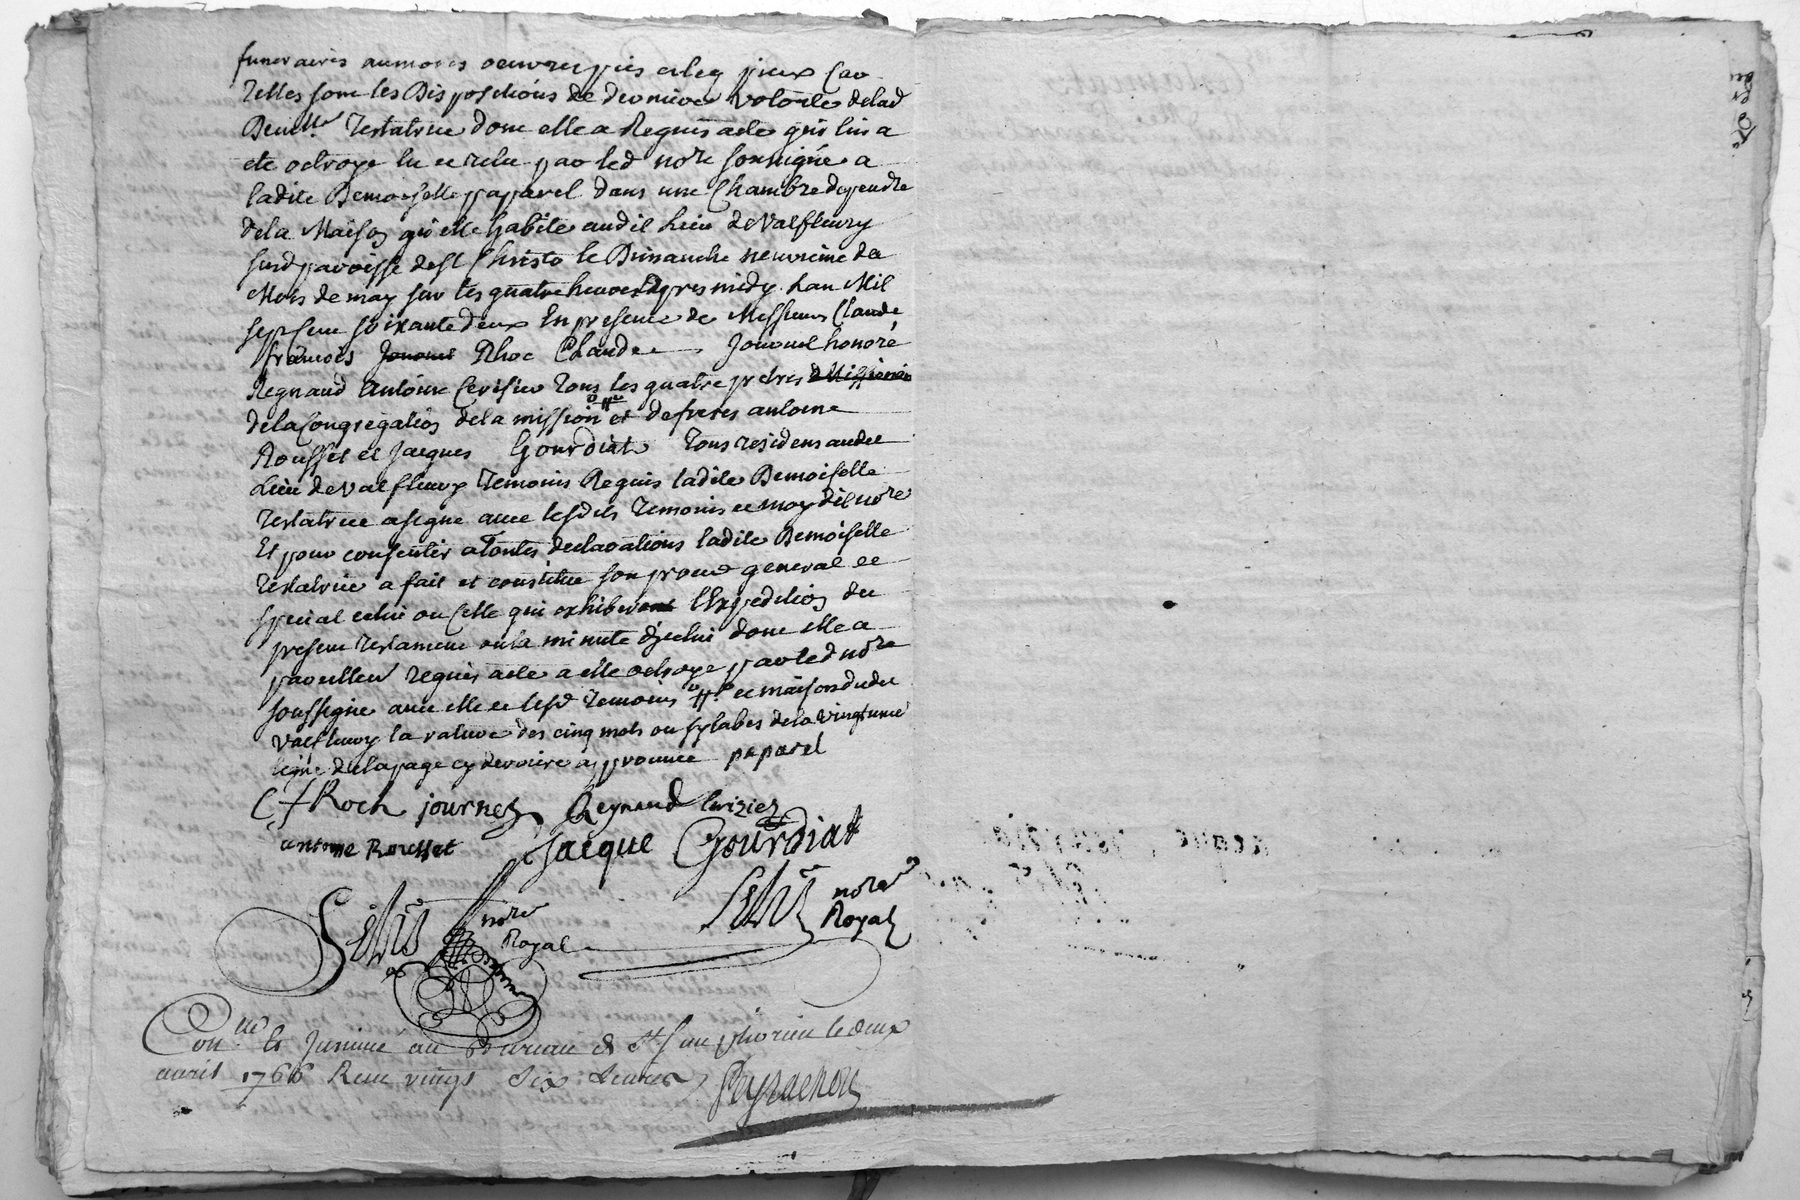 funeraires aumones oeuvres pies et leg pieux Car
Telles sont les Dispositions de derniere volonte delad
Demlle Testatrice dont elle a Requis acte qui luy a
ete octroye lu et relu par led notre soussigné a
ladite Demoiselle paparel dans une Chambre dependte
dela Maison qu'elle habite audit Lieu de Valfleury
susd paroisse de St Christo le Dimanche neuvieme de
Mois de may sur les quatre heures Apres midy Lan Mil
sept cent soixante deux En presence de Messieurs Claude
francois Rhoc Claude Jouvnel honoré
Regnaud Antoine Cerisier Tous les quatre pretres
dela Congregation dela mission et de freres antoine
Rousset et Jacques Gourdiat Tous residens audit
Lieu de Valfleury Temoins Requis ladite Demoiselle
Testatrice a signe avec lesdits Temoins et moy dit notre
Et pour consentir a Toutes declarations ladite Demoiselle
Testatrice a fait et constitue son procur general et
special celui ou Celle qui exhibera l'Expedition du
present Testament ou la minute d'jcelui dont elle a
pareillem requis acte a elle octroye par led notre
soussigne avec elle et lesd Temoins et maison dudit
Valfleury la rature des cinq mots ou sylabes de la vingt une
ligne de la page cy derriere approuvée paparel
C f Roch journel Regnaud Cerizier
antoine Rousset Jacque Gourdiat
notre Royal
notre Royal
Conlle et Jnsinué au Bureau de St Simphorien le deux
avril 1766 Recu vingt six